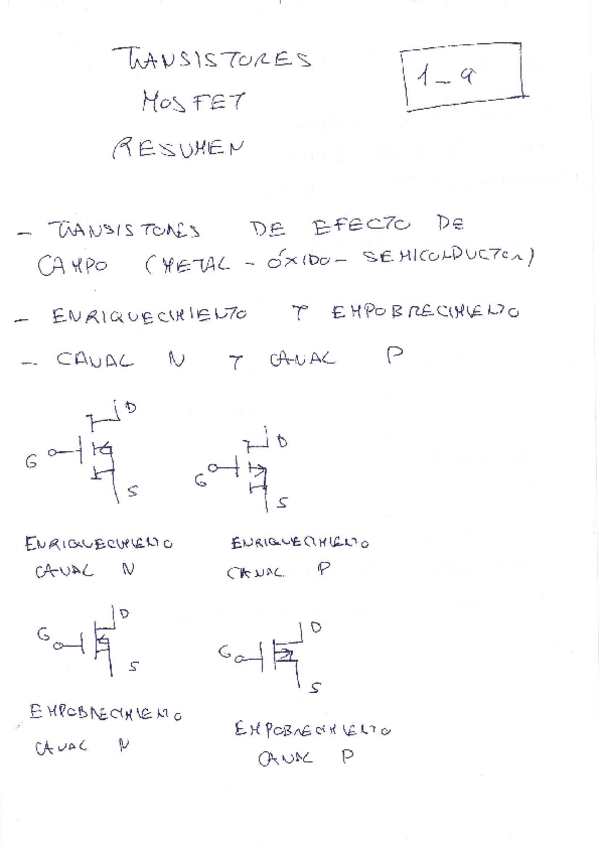 TRANSISTORES
MOSFET
RESUMEN
1-a
- TRANSISTORES DE EFECTO DE
CAMPO (METAL - ÓXIDO - SEMICONDUCTOR)
- ENRIQUECIMIENTO Y EMPOBRECIMIENTO
- CANAL N Y CANAL P
D
G
S
D
G
S
ENRIQUECIMIENTO
CANAL N
ENRIQUECIMIENTO
CANAL P
D
G
S
D
G
S
EMPOBRECIMIENTO
CANAL N
EMPOBRECIMIENTO
CANAL P